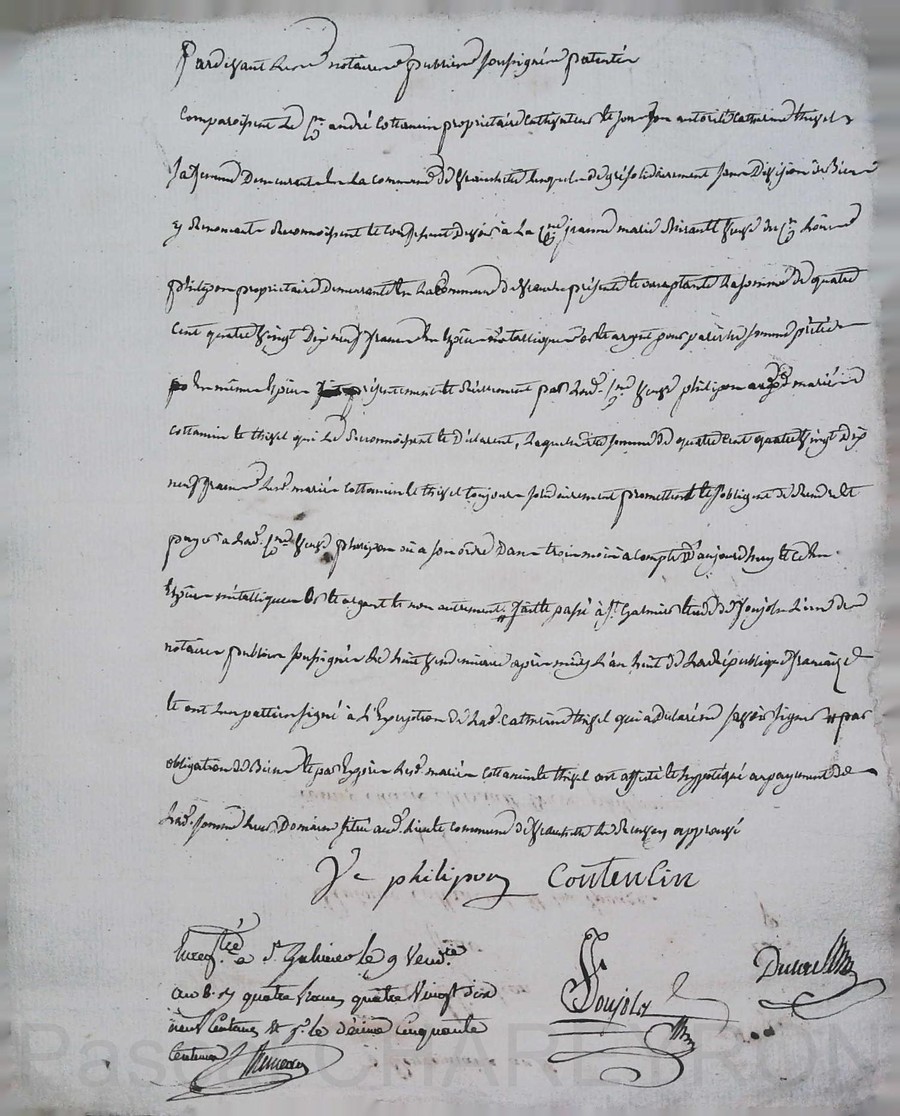 Pardevant Les notaires publics soussignés patentés
Comparoissent Le Cen andré Cottancin propriétaire cultivateur et sous son autorité Catherine thizel
Sa femme Demeurants en La commune de lesquels de gré solidairement sans Division de Biens
y Renonçants Reconnoissent et confessent Devoir à La Cne jeanne marie veuve du Cen
philipon propriétaire Demeurante en La Commune de présente et acceptante La somme de quatre
Cent quatre vingt Dix neuf francs En Espèces métalliques or et argent pour pareille somme prêtée
En mêmes Espèces présentement et Réellement par Lad. Cne veuve philipon auxds mariés
Cottancin et thizel qui Le Reconnoissent et Déclarent, Laquelle dite somme de quatre cent quatre vingt dix
neuf francs Lesd. mariés Cottancin et thizel toujours solidairement promettent et s'obligent de Rendre et
payer à Lad. Cne veuve philipon ou à son ordre Dans trois mois à compter D'aujourd'huy et ce En
Espèces métalliques or et argent et non autrement # fait et passé à St. Galmier étude de Soujols L'un des
notaires publics soussignés Le huit vendémiaire après midy L'an huit de La République française
et ont Les parties signé à L'Exception de Lad. Catherine thizel qui a Déclaré ne savoir signer # par
obligation de Biens et par Exprès Lesd. mariés Cottancin et thizel ont affecté et hypotéqué au payement de
Lad. somme Leurs Domaines situé aud. lieu et commune de approuvé
Ve philipon Coutenlin
Enregtré à St Galmier le 9 Vendre
an 8. Ry quatre francs quatre Vingt dix
neuf Centimes & pr. le décime Cinquante
Centimes
Soujols